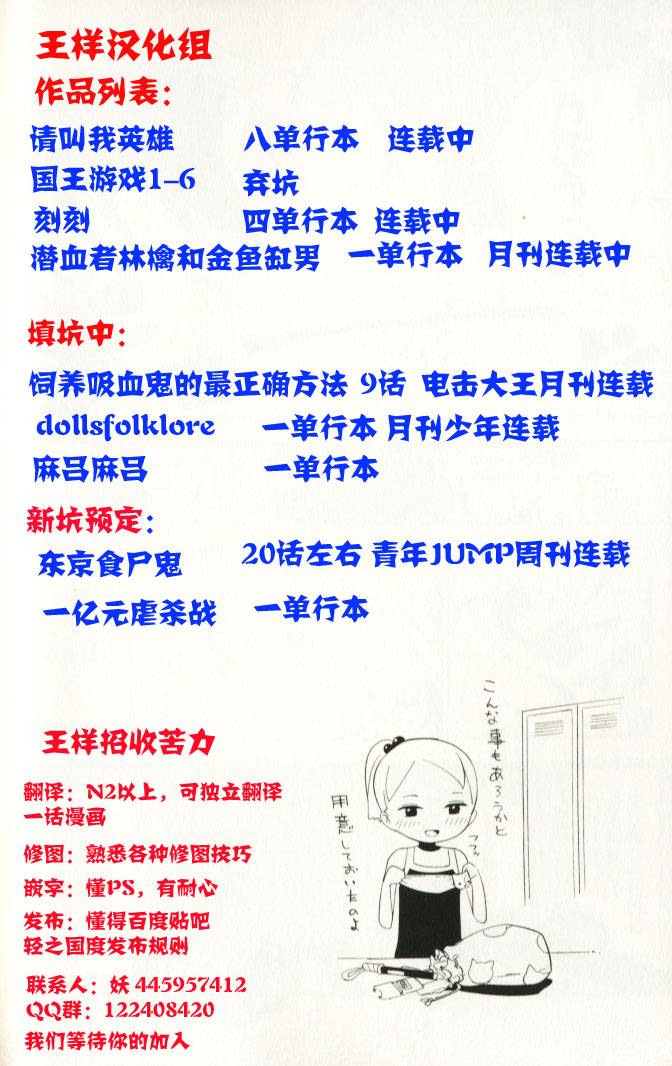 王样汉化组
作品列表：
请叫我英雄 八单行本 连载中
国王游戏1-6 弃坑
刻刻 四单行本 连载中
潜血者林檎和金鱼缸男 一单行本 月刊连载中
填坑中：
饲养吸血鬼的最正确方法 9话 电击大王月刊连载
dollsfolklore 一单行本 月刊少年连载
麻吕麻吕 一单行本
新坑预定：
东京食尸鬼 20话左右 青年JUMP周刊连载
一亿元虐杀战 一单行本
王样招收苦力
翻译：N2以上，可独立翻译
一话漫画
修图：熟悉各种修图技巧
嵌字：懂PS，有耐心
发布：懂得百度贴吧
轻之国度发布规则
联系人：妖 445957412
QQ群：122408420
我们等待你的加入
こんな事もあろうかと
フフッ
用意しておいたのよ